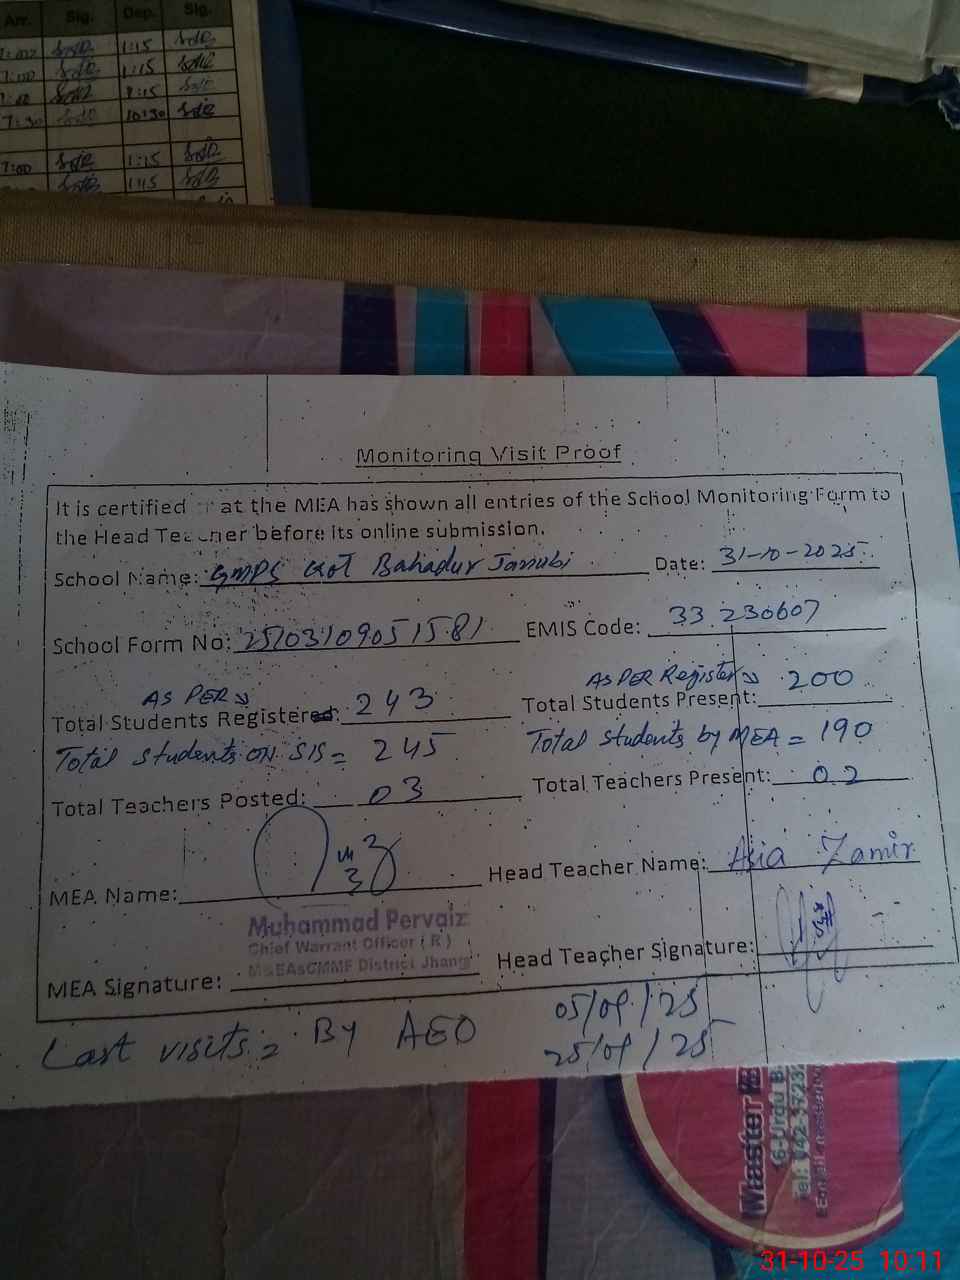 Arr. Sig. Dep. Sig.
1:15
7:00 1:15
1:15
7:30 10:30
7:00 1:15
1:15
Monitoring Visit Proof
It is certified at the MEA has shown all entries of the School Monitoring Form to
the Head Teacher before its online submission.
School Name: GMPS Kot Bahadur Janubi Date: 31-10-2025
School Form No: 2510310905 1581 EMIS Code: 33230607
AS PER AS PER Register
Total Students Registered: 243 Total Students Present: 200
Total Students ON SIS = 245 Total Students by MEA = 190
Total Teachers Posted: 03 Total Teachers Present: 02
MEA Name: Head Teacher Name: Asia Zamir
Muhammad Pervaiz
Chief Warrant Officer (R)
M&EAsCMMF District Jhang
MEA Signature: Head Teacher Signature:
Last visits By AEO 05/09/25
25/09/25
Master
16-Urdu B
Tel: 042-3723
31-10-25 10:11